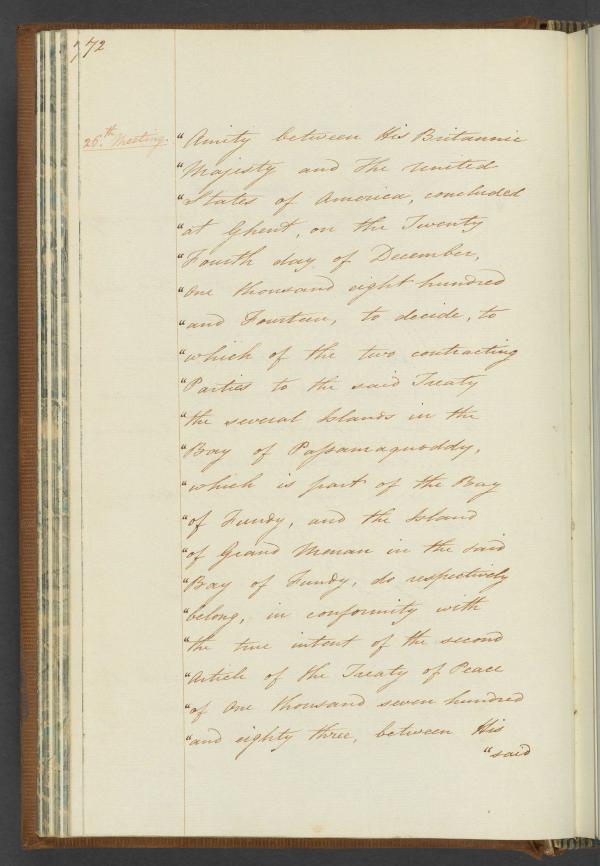 772
26.th Meeting.
"Amity between His Britannic
"Majesty and The United
"States of America, concluded
"at Ghent, on the Twenty
"Fourth day of December,
"One thousand eight hundred
"and Fourteen, to decide, to
"which of the two contracting
"Parties to the said Treaty
"the several Islands in the
"Bay of Passamaquoddy,
"which is part of the Bay
"of Fundy, and the Island
"of Grand Menan in the said
"Bay of Fundy, do respectively
"belong, in conformity with
"the true intent of the second
"Article of the Treaty of Peace
"of One thousand seven hundred
"and eighty three, between His
"said